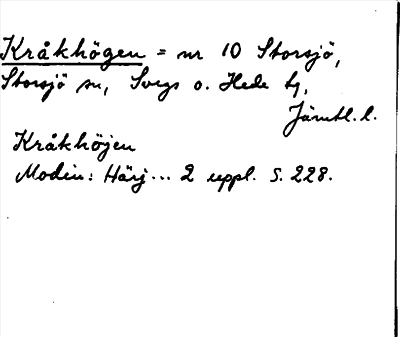 Kråkhögen = nr 10 Storsjö,
Storsjö sn, Svegs o. Hede tg,
Jämtl. l.
Kråkhöjen
Modin: Härj... 2 uppl. S. 228.